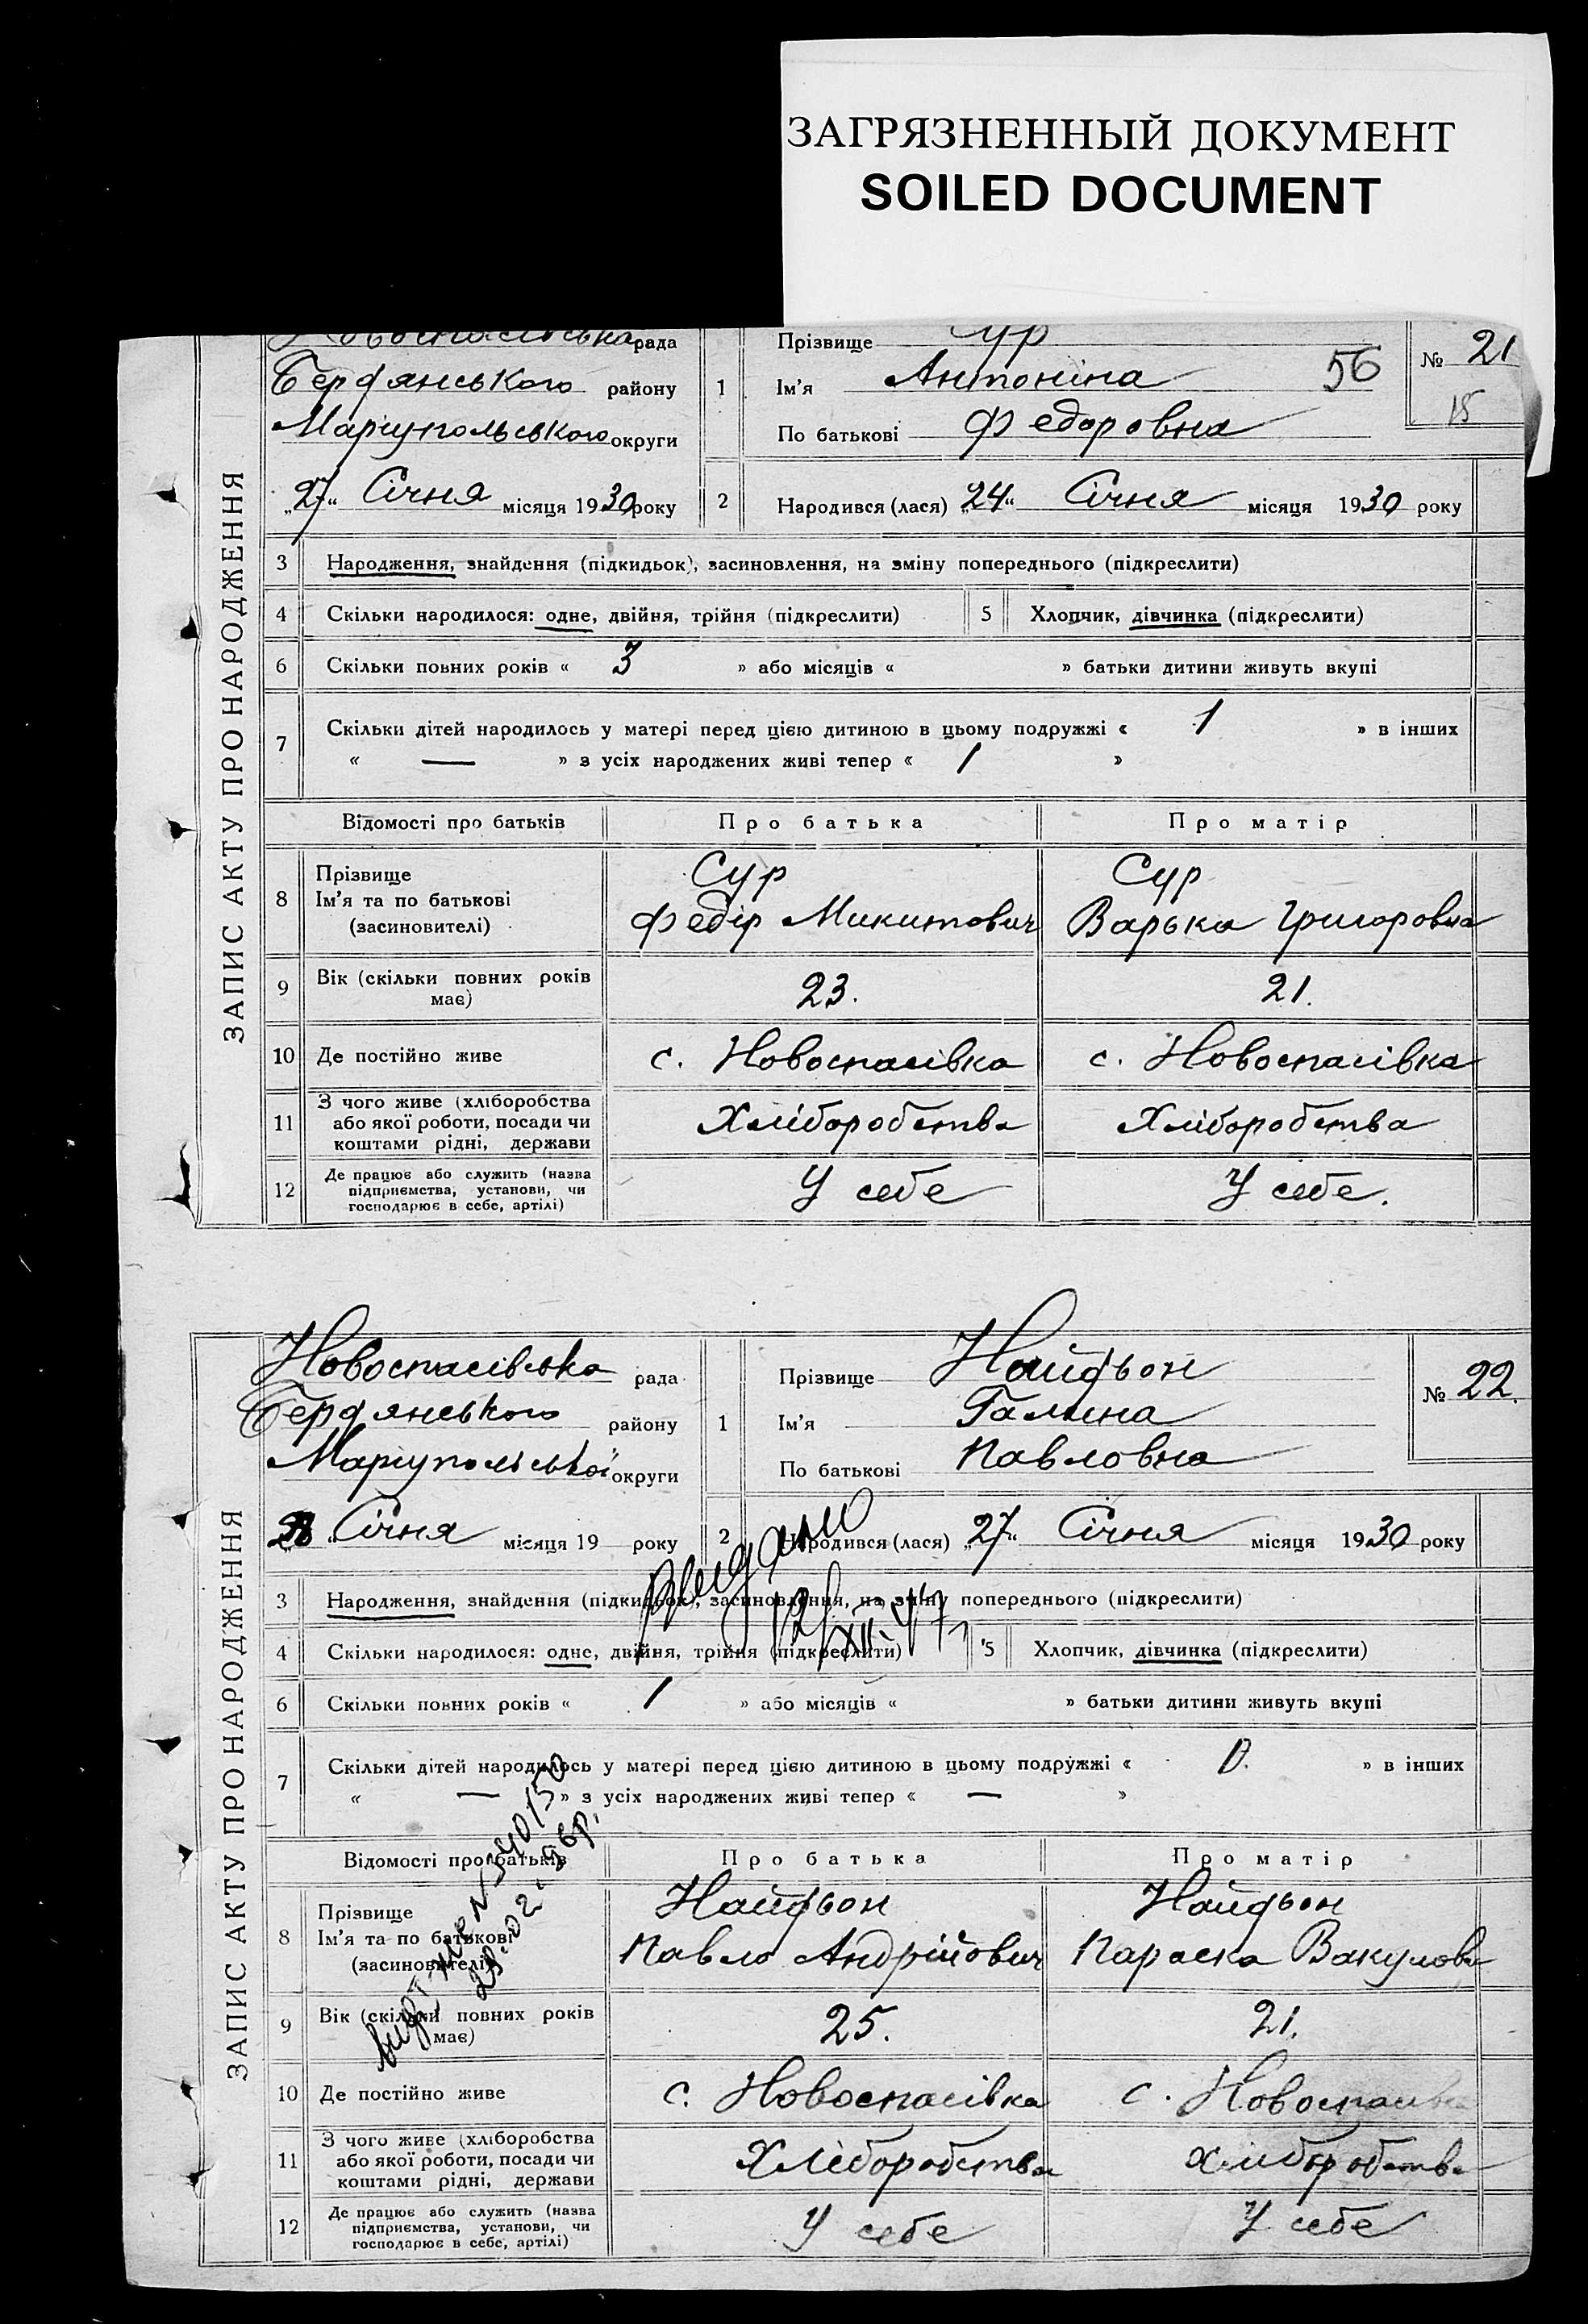 ЗАГРЯЗНЕННЫЙ ДОКУМЕНТ
SOILED DOCUMENT
ЗАПИС АКТУ ПРО НАРОДЖЕННЯ
рада
Бердянського району
Маріупольського округи
„27“ Січня місяця 1930 року
1
Прізвище Сур
Ім'я Антоніна
По батькові Федоровна
56
№ 21
15
2 Народився (лася) „24“ Січня місяця 1930 року
3 Народження, знайдення (підкидьок), засиновлення, на зміну попереднього (підкреслити)
4 Скільки народилося: одне, двійня, трійня (підкреслити) 5 Хлопчик, дівчинка (підкреслити)
6 Скільки повних років « 3 » або місяців « » батьки дитини живуть вкупі
7 Скільки дітей народилось у матері перед цією дитиною в цьому подружжі « 1 » в інших
« — » з усіх народжених живі тепер « 1 »
Відомості про батьків Про батька Про матір
8 Прізвище Ім'я та по батькові (засиновителі)
Сур Сур
Федір Микитович Варька Григоровна
9 Вік (скільки повних років має) 23. 21.
10 Де постійно живе с. Новоспасівка с. Новоспасівка
11 З чого живе (хліборобства або якої роботи, посади чи коштами рідні, держави Хліборобства Хліборобства
12 Де працює або служить (назва підприємства, установи, чи господарює в себе, артілі) У себе У себе.
ЗАПИС АКТУ ПРО НАРОДЖЕННЯ
Новоспасівська рада
Бердянського району
Маріупольської округи
Січня місяця 19 року
1
Прізвище Найдьон
Ім'я Галина
По батькові Павловна
№ 22.
2 Народився (лася) „27“ Січня місяця 1930 року
3 Народження, знайдення (підкидьок), засиновлення, на зміну попереднього (підкреслити)
4 Скільки народилося: одне, двійня, трійня (підкреслити) 5 Хлопчик, дівчинка (підкреслити)
6 Скільки повних років « 1 » або місяців « » батьки дитини живуть вкупі
7 Скільки дітей народилось у матері перед цією дитиною в цьому подружжі « » в інших
« — » з усіх народжених живі тепер « — »
Відомості про батьків Про батька Про матір
8 Прізвище Ім'я та по батькові (засиновителі)
Найдьон Найдьон
Павло Андрійович Параска Вакуловн
9 Вік (скільки повних років має) 25. 21.
10 Де постійно живе с. Новоспасівка с. Новоспасівка
11 З чого живе (хліборобства або якої роботи, посади чи коштами рідні, держави Хліборобства Хліборобства
12 Де працює або служить (назва підприємства, установи, чи господарює в себе, артілі) У себе У себе